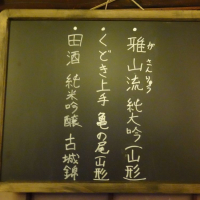 ・雅山流 純大吟（山形）
がさんりゅう
・くどき上手 亀の尾（山形）
・田酒 純米吟醸 古城錦